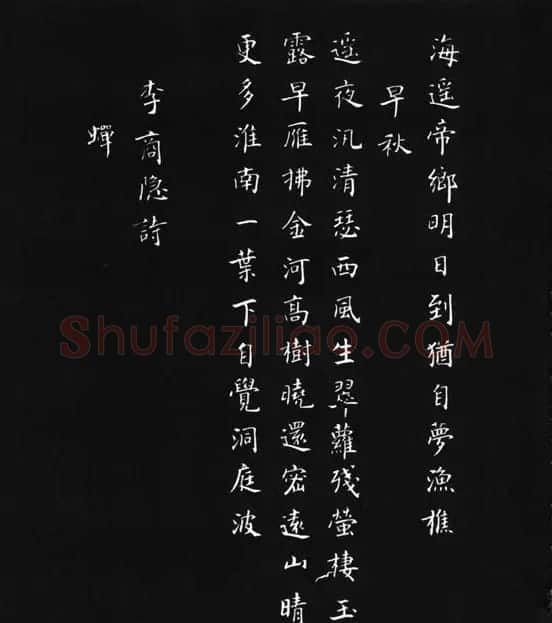 海遥帝鄉明日到猶自夢漁樵
早秋
遥夜汎清瑟西風生翠蘿残螢棲玉
露早雁拂金河高樹曉還密遠山晴
更多淮南一葉下自覺洞庭波
李商隐詩
蟬
Shufaziliao.COM